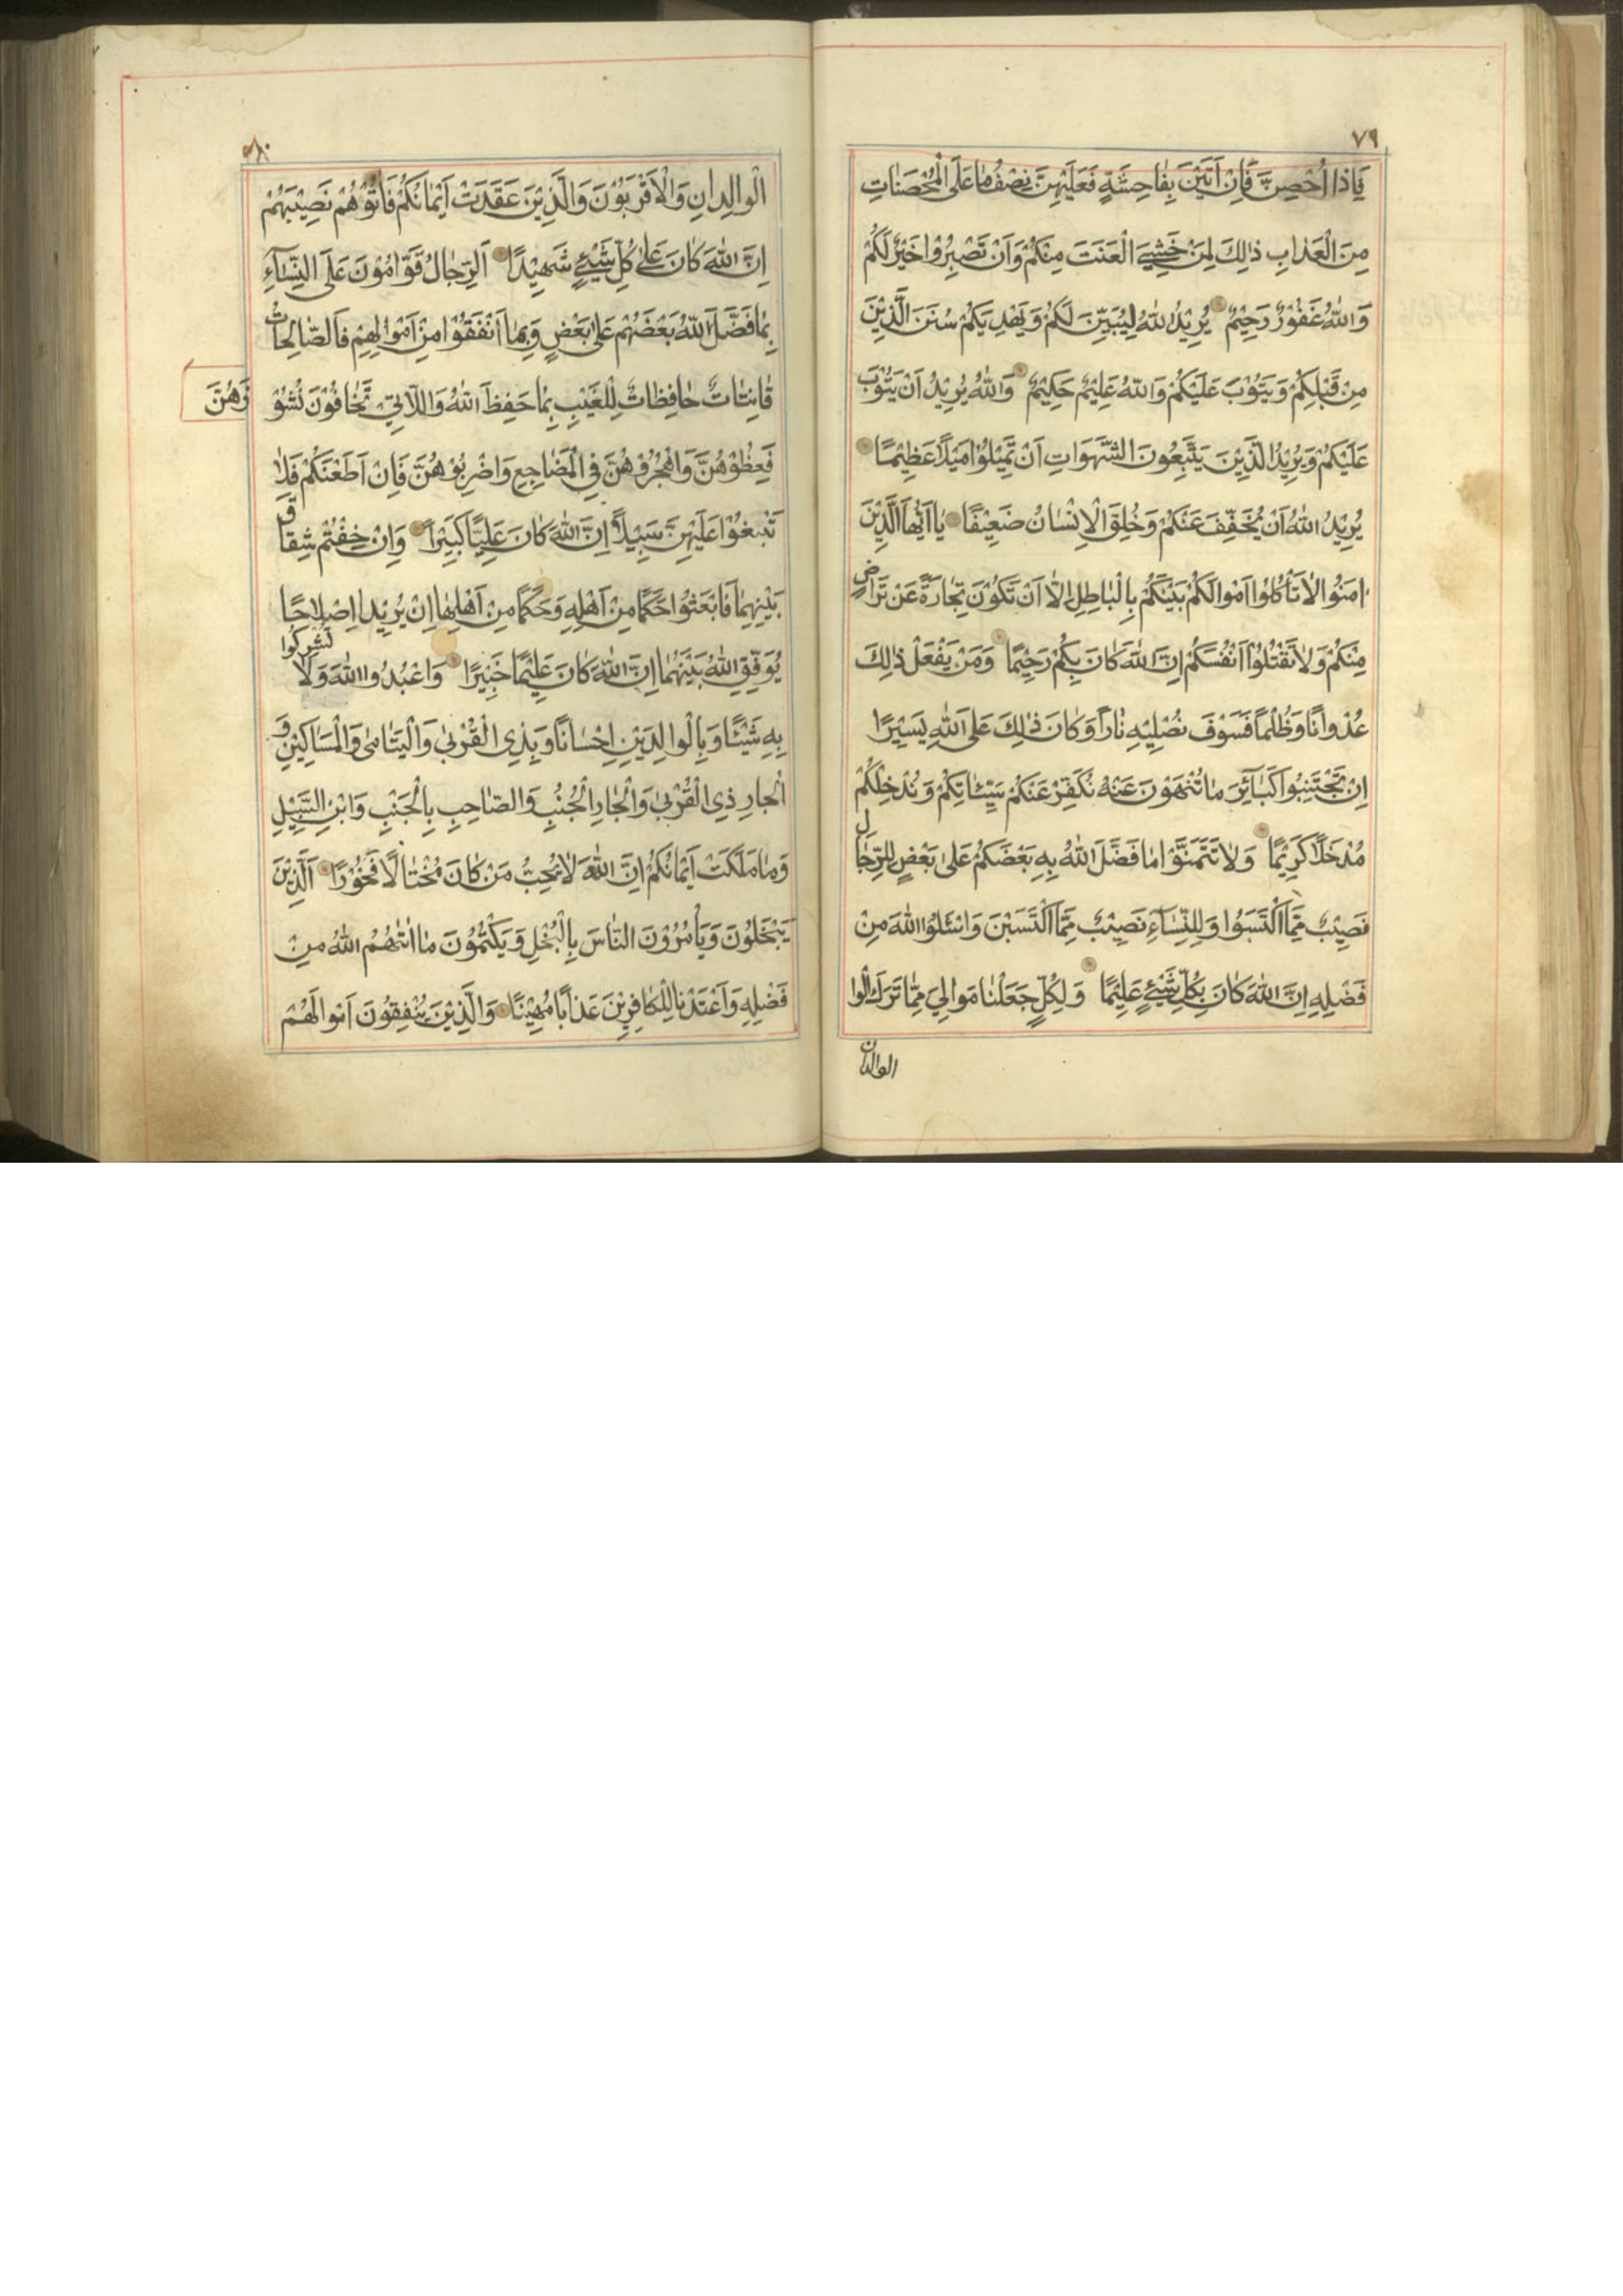 ٧٩
فَاِذَا اُحْصِنَّ فَاِنْ اَتَيْنَ بِفَاحِشَةٍ فَعَلَيْهِنَّ نِصْفُ مَا عَلَى الْمُحْصَنَاتِ
مِنَ الْعَذَابِ ذٰلِكَ لِمَنْ خَشِيَ الْعَنَتَ مِنْكُمْ وَاَنْ تَصْبِرُوْا خَيْرٌ لَكُمْ
وَاللّٰهُ غَفُوْرٌ رَحِيْمٌ يُرِيْدُ اللّٰهُ لِيُبَيِّنَ لَكُمْ وَيَهْدِيَكُمْ سُنَنَ الَّذِيْنَ
مِنْ قَبْلِكُمْ وَيَتُوْبَ عَلَيْكُمْ وَاللّٰهُ عَلِيْمٌ حَكِيْمٌ وَاللّٰهُ يُرِيْدُ اَنْ يَتُوْبَ
عَلَيْكُمْ وَيُرِيْدُ الَّذِيْنَ يَتَّبِعُوْنَ الشَّهَوَاتِ اَنْ تَمِيْلُوْا مَيْلًا عَظِيْمًا
يُرِيْدُ اللّٰهُ اَنْ يُخَفِّفَ عَنْكُمْ وَخُلِقَ الْاِنْسَانُ ضَعِيْفًا يَااَيُّهَا الَّذِيْنَ
اٰمَنُوا لَا تَأْكُلُوْا اَمْوَالَكُمْ بَيْنَكُمْ بِالْبَاطِلِ اِلَّا اَنْ تَكُوْنَ تِجَارَةً عَنْ تَرَاضٍ
مِنْكُمْ وَلَا تَقْتُلُوْا اَنْفُسَكُمْ اِنَّ اللّٰهَ كَانَ بِكُمْ رَحِيْمًا وَمَنْ يَفْعَلْ ذٰلِكَ
عُدْوَانًا وَظُلْمًا فَسَوْفَ نُصْلِيْهِ نَارًا وَكَانَ ذٰلِكَ عَلَى اللّٰهِ يَسِيْرًا
اِنْ تَجْتَنِبُوْا كَبَائِرَ مَا تُنْهَوْنَ عَنْهُ نُكَفِّرْ عَنْكُمْ سَيِّئَاتِكُمْ وَنُدْخِلْكُمْ
مُدْخَلًا كَرِيْمًا وَلَا تَتَمَنَّوْا مَا فَضَّلَ اللّٰهُ بِهِ بَعْضَكُمْ عَلٰى بَعْضٍ لِلرِّجَالِ
نَصِيْبٌ مِمَّا اكْتَسَبُوا وَلِلنِّسَآءِ نَصِيْبٌ مِمَّا اكْتَسَبْنَ وَاسْئَلُوا اللّٰهَ مِنْ
فَضْلِهِ اِنَّ اللّٰهَ كَانَ بِكُلِّ شَيْئٍ عَلِيْمًا وَلِكُلٍّ جَعَلْنَا مَوَالِيَ مِمَّا تَرَكَ الْوا
الوالدان
٨٠
الْوَالِدَانِ وَالْاَقْرَبُوْنَ وَالَّذِيْنَ عَقَدَتْ اَيْمَانُكُمْ فَاٰتُوْهُمْ نَصِيْبَهُمْ
اِنَّ اللّٰهَ كَانَ عَلٰى كُلِّ شَيْئٍ شَهِيْدًا اَلرِّجَالُ قَوَّامُوْنَ عَلَى النِّسَآءِ
بِمَا فَضَّلَ اللّٰهُ بَعْضَهُمْ عَلٰى بَعْضٍ وَبِمَا اَنْفَقُوْا مِنْ اَمْوَالِهِمْ فَالصَّالِحَاتُ
قَانِتَاتٌ حَافِظَاتٌ لِلْغَيْبِ بِمَا حَفِظَ اللّٰهُ وَاللَّاتِيْ تَخَافُوْنَ نُشُوْ زَهُنَّ
فَعِظُوْهُنَّ وَاهْجُرُوْهُنَّ فِي الْمَضَاجِعِ وَاضْرِبُوْهُنَّ فَاِنْ اَطَعْنَكُمْ فَلَا
تَبْغُوْا عَلَيْهِنَّ سَبِيْلًا اِنَّ اللّٰهَ كَانَ عَلِيًّا كَبِيْرًا وَاِنْ خِفْتُمْ شِقَاقَ
بَيْنِهِمَا فَابْعَثُوْا حَكَمًا مِنْ اَهْلِهِ وَحَكَمًا مِنْ اَهْلِهَا اِنْ يُرِيْدَا اِصْلَاحًا
يُوَفِّقِ اللّٰهُ بَيْنَهُمَا اِنَّ اللّٰهَ كَانَ عَلِيْمًا خَبِيْرًا وَاعْبُدُوا اللّٰهَ وَلَا تُشْرِكُوا
بِهِ شَيْئًا وَبِالْوَالِدَيْنِ اِحْسَانًا وَبِذِي الْقُرْبٰى وَالْيَتَامٰى وَالْمَسَاكِيْنِ وَ
الْجَارِ ذِي الْقُرْبٰى وَالْجَارِ الْجُنُبِ وَالصَّاحِبِ بِالْجَنْبِ وَابْنِ السَّبِيْلِ
وَمَا مَلَكَتْ اَيْمَانُكُمْ اِنَّ اللّٰهَ لَا يُحِبُّ مَنْ كَانَ مُخْتَالًا فَخُوْرًا اَلَّذِيْنَ
يَبْخَلُوْنَ وَيَأْمُرُوْنَ النَّاسَ بِالْبُخْلِ وَيَكْتُمُوْنَ مَا اٰتٰهُمُ اللّٰهُ مِنْ
فَضْلِهِ وَاَعْتَدْنَا لِلْكَافِرِيْنَ عَذَابًا مُهِيْنًا وَالَّذِيْنَ يُنْفِقُوْنَ اَمْوَالَهُمْ